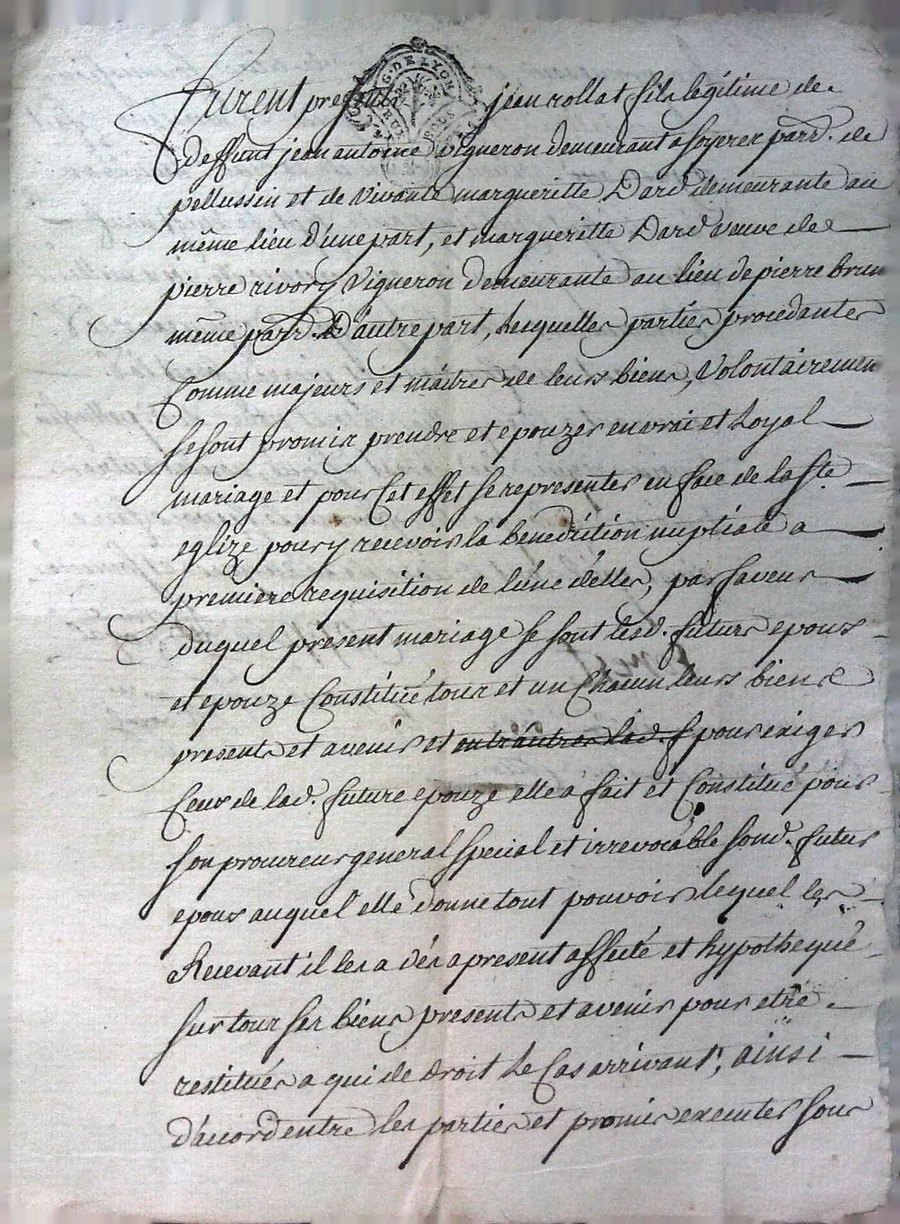 G. DE LYON
furent presents jean rollat fils légitime de
deffunt jean antoine vigneron demeurant a soyeres parr. de
pellussin et de vivante margueritte Dard demeurante au
même lieu d'une part, et margueritte Dard veuve de
pierre rivory vigneron demeurante au lieu de pierre brun
même parr. D'autre part, lesquelles parties procédantes
Comme majeurs et maitres de leurs biens, volontairemen
se sont promis prendre et epouzer en vrai et loyal
mariage et pour Cet effet se representer en face de la ste
eglize pour y recevoir la benediction nuptiale a
premiere requisition de l'une d'elles, par faveur
duquel present mariage se sont lesd. futurs epoux
et epouze Constitué tour et un Chacun leurs biens
presents et avenir et entr'autres lad. f pour exiger
Ceux de lad. future epouze elle a fait et Constitué pour
son procureur general special et irrevocable sond. futur
epoux auquel elle donne tout pouvoir lequel les
Recevant il les a dés apresent affecté et hypothequé
sur tour ses biens presents et avenir pour etre
restitués a qui de droit le Cas arrivant, ainsi
d'accord entre les parties et promis executer sour